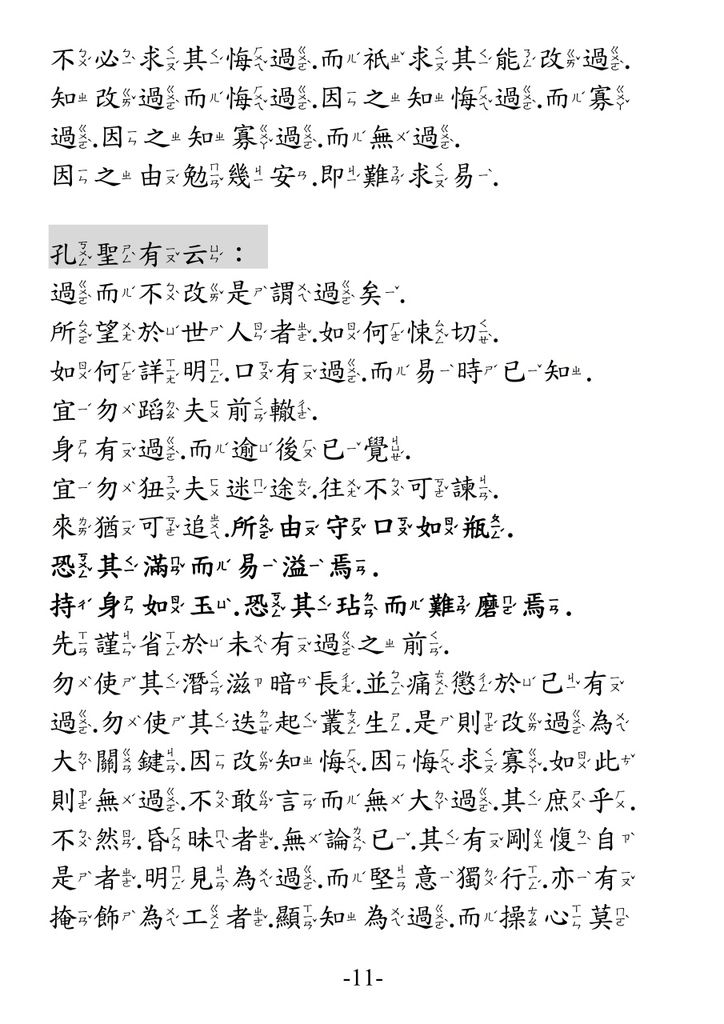 不必求其悔過.而祇求其能改過.
知改過而悔過.因之知悔過.而寡
過.因之知寡過.而無過.
因之由勉幾安.即難求易.
孔聖有云：
過而不改是謂過矣.
所望於世人者.如何悚切.
如何詳明.口有過.而易時已知.
宜勿蹈夫前轍.
身有過.而逾後已覺.
宜勿狃夫迷途.往不可諫.
來猶可追.所由守口如瓶.
恐其滿而易溢焉.
持身如玉.恐其玷而難磨焉.
先謹省於未有過之前.
勿使其潛滋暗長.並痛懲於己有
過.勿使其迭起叢生.是則改過為
大關鍵.因改知悔.因悔求寡.如此
則無過.不敢言而無大過.其庶乎.
不然.昏昧者.無論已.其有剛愎自
是者.明見為過.而堅意獨行.亦有
掩飾為工者.顯知為過.而操心莫
-11-